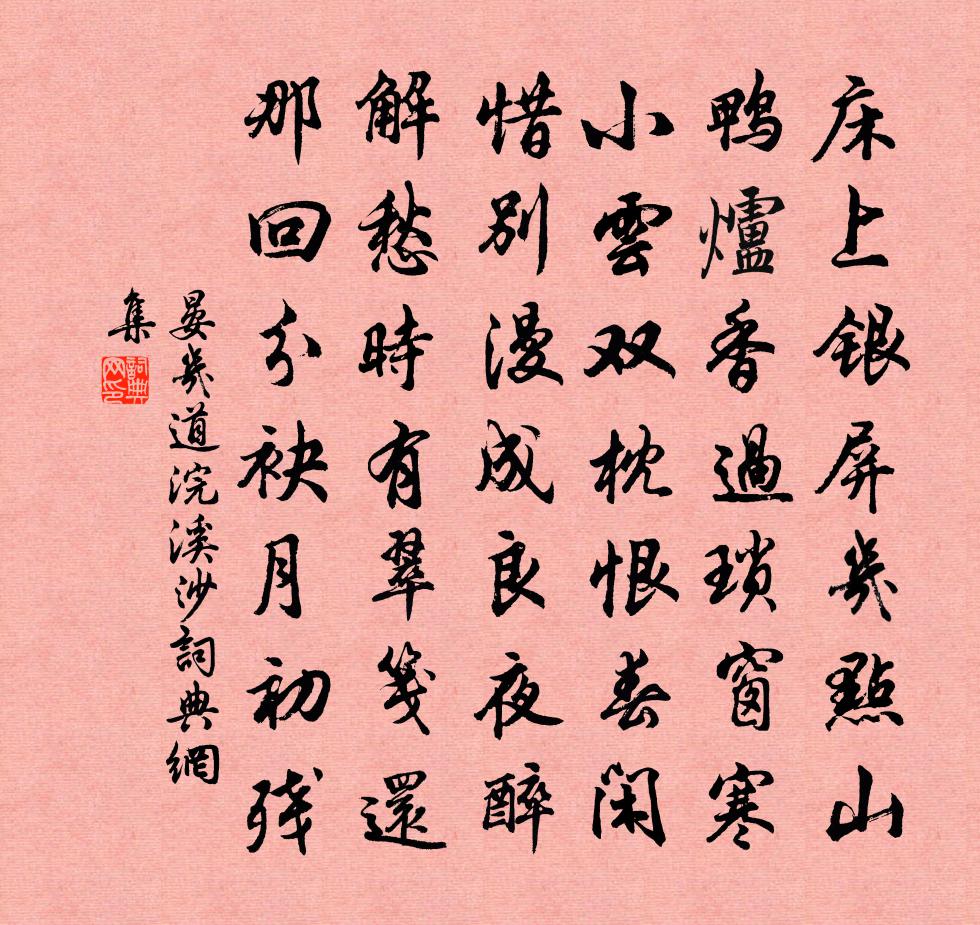 床上银屏幾點山
鸭爐香過瑣窗寒
小雲双枕恨春闲
惜别漫成良夜醉
解愁時有翠箋還
那回分袂月初残
晏幾道浣溪沙詞典網
集
詞典
网印